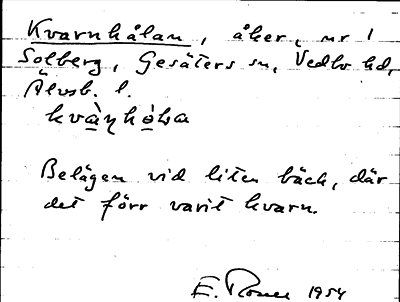 Kvarnhålan, åker, nr 1
Solberg, Gesäters sn, Vedbo hd,
Älvsb. l.
kvàɳhòla
Belägen vid liten bäck, där
det förr varit kvarn.
E. 1954